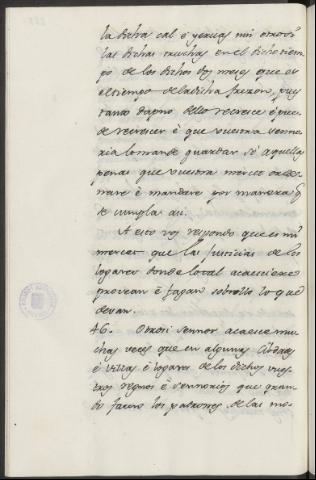 la dicha cal é yervas nin otrosi
las dichas truchas en el dicho tiem-
po de los dichos dos meses que es
el tiempo de la dicha frezon, pues
tanto dapno dello recrece é pue-
de recrecer é que vuestra senno-
ria lo mande guardar só aquellas
penas que vuestra merced orde-
nare é mandare por manera q.
se cumpla asi.
A esto vos respondo que es mi
merced que las justicias de los
logares donde lo tal acaesciere
provean é fagan sobrello lo que
devan.
46. Otrosi sennor acaesce mu-
chas veces que en algunas Cibdades
é villas é logares de los dichos vues-
tros regnos é sennorios que quan-
do facen los patrones de las mo-